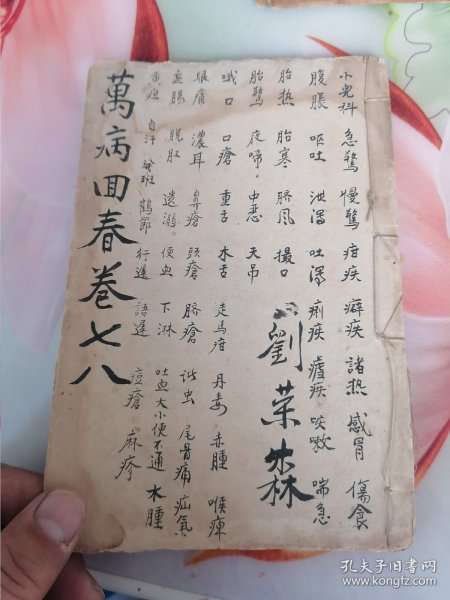 小兒科 急驚 慢驚 疳疾 癖疾 諸熱 感冒 傷食
腹脹 嘔吐 泄瀉 吐瀉 痢疾 瘧疾 咳嗽 喘急
胎熱 胎寒 臍風 撮口
劉荣森
胎驚 夜啼 中惡 天吊
鵝口 口瘡 重舌 木舌 走馬疳 丹毒 赤腫 喉痺
喉痛 濃耳 鼻瘡 頭瘡 臍瘡 諸虫 尾骨痛 疝氣
盤腸 脫肛 遺溺 便血 下淋 吐血 大小便不通 水腫
黃疸 自汗 發斑 鶴節 行遲 語遲 痘瘡 麻疹
萬病回春卷七八
孔夫子旧书网
www.kongfz.com